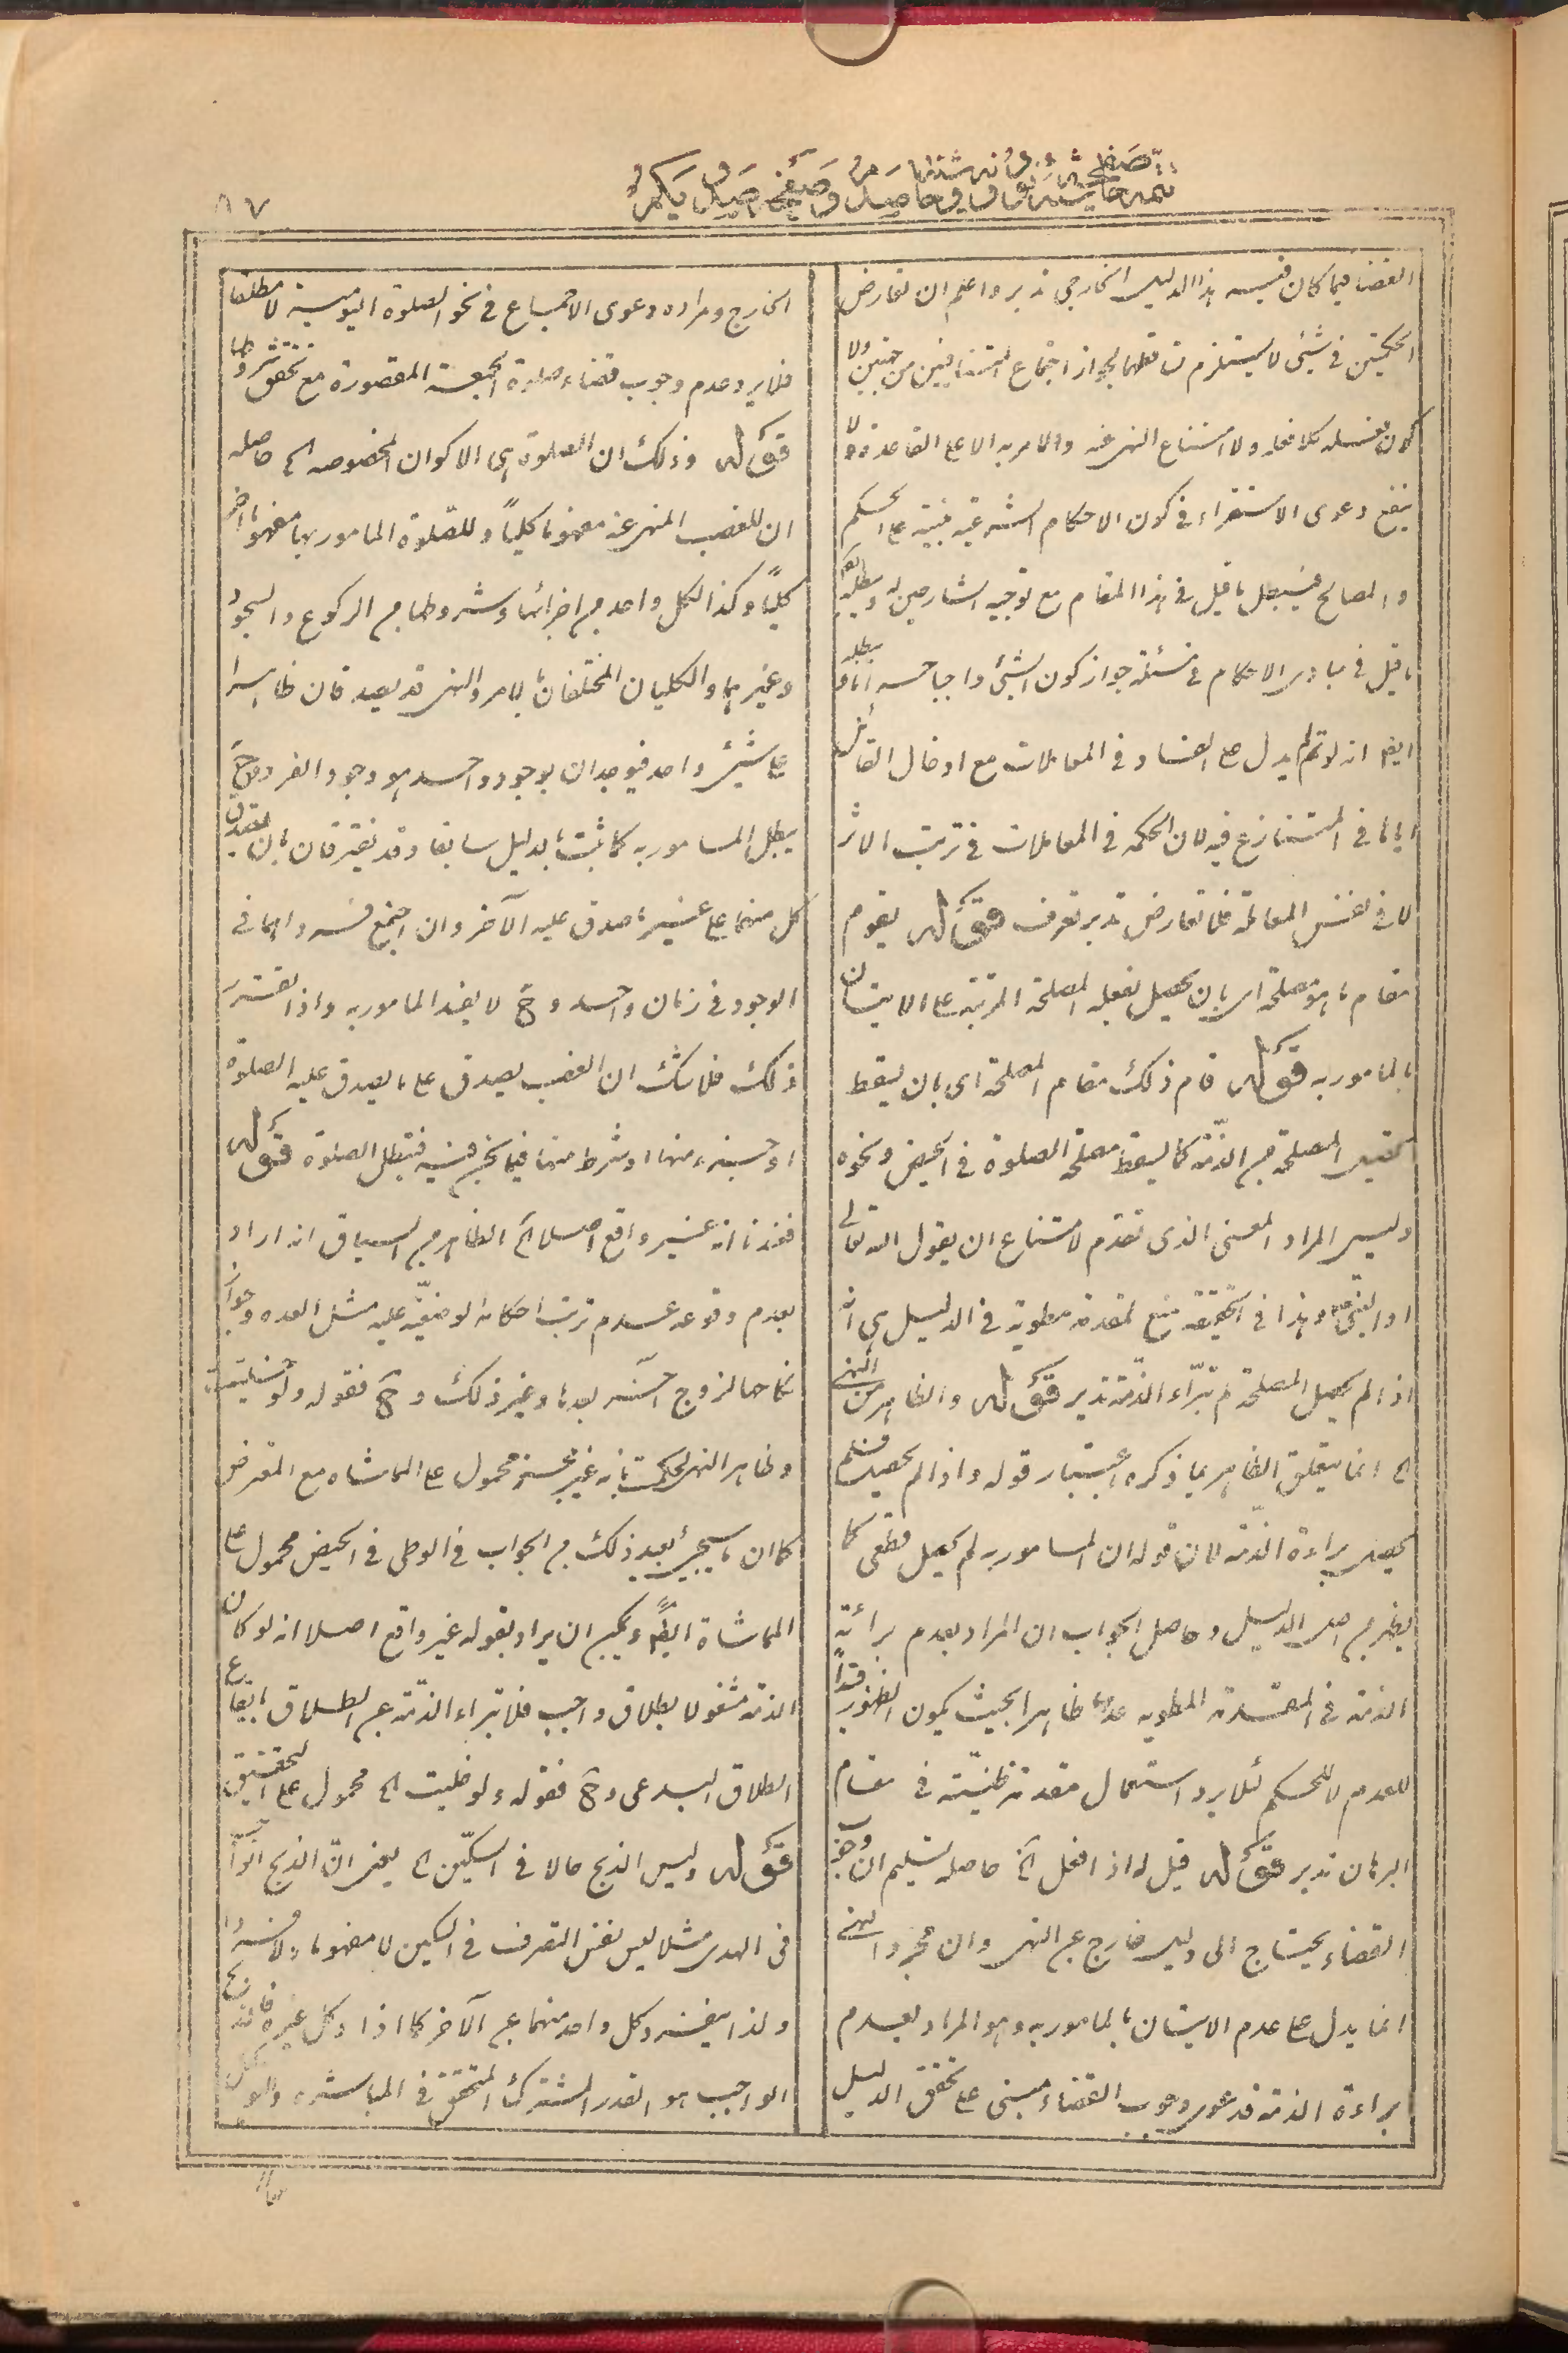 ٨٧
القضا فيما كان فيه هذا الدليل الخارجى تدبر واعلم ان تعارض
الحكمتين فى شئ لا يستلزم تساقطهما لجواز اجتماع المتنافيين من جهتين ولا
كون فعله كلا فعله ولا امتناع النهى عنه والامر به الا على القاعدة ولا
ينفع دعوى الاستقراء فى كون الاحكام الشرعية مبنية على الحكم
والمصالح فيبطل ما قيل فى هذا المقام مع توجيه الشارحين له
ما قيل فى مبادى الاحكام فى مسئلة جواز كون الشئ واجبا حسه
ايضا انه لو تم لم يدل على الفساد فى المعاملات مع ادخال القائل
اياها فى المتنازع فيه لان الحكمة فى المعاملات فى ترتب الاثر
لا فى نفس المعاملة فلا تعارض تدبر تعرف قوله يقوم
مقام ما هو مصلحة اى بان يحصل بفعله المصلحة المرتبة على الاتيان
بالمامور به قوله قام ذلك مقام المصلحة اى بان يسقط
المصلحة عن الذمة كما يسقط مصلحة الصلوة فى الحيض ونحوه
وليس المراد المعنى الذى تقدم لامتناع ان يقول الله تعالى
او النبى ص وهذا فى الحقيقة منع لمقدمة مطوية فى الدليل هى انه
اذا لم يحصل المصلحة لم تبرء الذمة تدبر قوله والظاهر من النهى
الخ انما يتعلق الظاهر بما ذكره باعتبار قوله واذا لم يحصل فلم
يحصل براءة الذمة لان قوله ان المامور به لم يحصل قطعى كما
يظهر من اصل الدليل وحاصل الجواب ان المراد بعدم برائة
الذمة فى المقدمة المطوية عدمها ظاهرا بحيث يكون الظهور قيدا
للعدم لا للحكم لئلا يرد استعمال مقدمة ظنية فى مقام
البرهان تدبر قوله قيل له اذا افعل الخ حاصله تسليم ان وجوب
القضاء يحتاج الى دليل خارج عن النهى وان مجرد النهى
انما يدل على عدم الاتيان بالمامور به وهو المراد بعدم
براءة الذمة فدعوى وجوب القضاء مبنى على تحقق الدليل
الخارج ومراده دعوى الاجماع فى نحو الصلوة اليومية لا مطلقا
فلا يرد عدم وجوب قضاء صلوة الجمعة المقصورة مع تحقق شروطها
قوله وذلك ان الصلوة هى الاكوان المخصوصه الخ حاصله
ان للغصب المنهى عنه مفهوما كليا وللصلوة المامور بها مفهوما اخر
كليا وكذا لكل واحد من اجزائها وشروطها من الركوع والسجود
وغيرهما والكليان المختلفان بالامر والنهى قد يصدقان ظاهرا
على شئ واحد فيوجدان بوجود واحد هو وجود الفرد وح
يبطل المامور به كما ثبت بالدليل سابقا وقد يفترقان بان يصدق
كل منهما على غير ما صدق عليه الآخر وان اجتمع فرداهما فى
الوجود فى زمان واحد وح لا يفسد المامور به واذا تقرر
ذلك فلا شك ان الغصب يصدق على ما يصدق عليه الصلوة
او جزء منها او شرط منها فيما نحن فيه فتبطل الصلوة قوله
فعندنا انه غير واقع اصلا الخ الظاهر من السياق انه اراد
بعدم وقوعه عدم ترتب احكامه الوضعية عليه مثل العده وجواز
نكاحها لزوج آخر بعدها وغير ذلك وح فقوله ولو خليت
وظاهر النهى لحكمت بانه غير مجز محمول على المماشاه مع المعترض
كما ان ما سيجئ بعيد ذلك من الجواب فى الوطى فى الحيض محمول على
المماشاة ايضا ويمكن ان يراد بقوله غير واقع اصلا انه لو كان
الذمة مشغولا بطلاق واجب فلا تبراء الذمة عن الطلاق بايقاع
الطلاق البدعى وح فقوله ولو خليت الخ محمول على التحقيق
قوله وليس الذبح حالا فى السكين الخ يعنى ان الذبح
فى الهدى مثلا ليس نفس التصرف فى السكين لا مفهوما ولا فردا
ولذا ينفرد كل واحد منهما عن الآخر كما اذا وكل غيره فى الذبح
الواجب هو القدر المشترك المتحقق فى المباشره والتوكيل